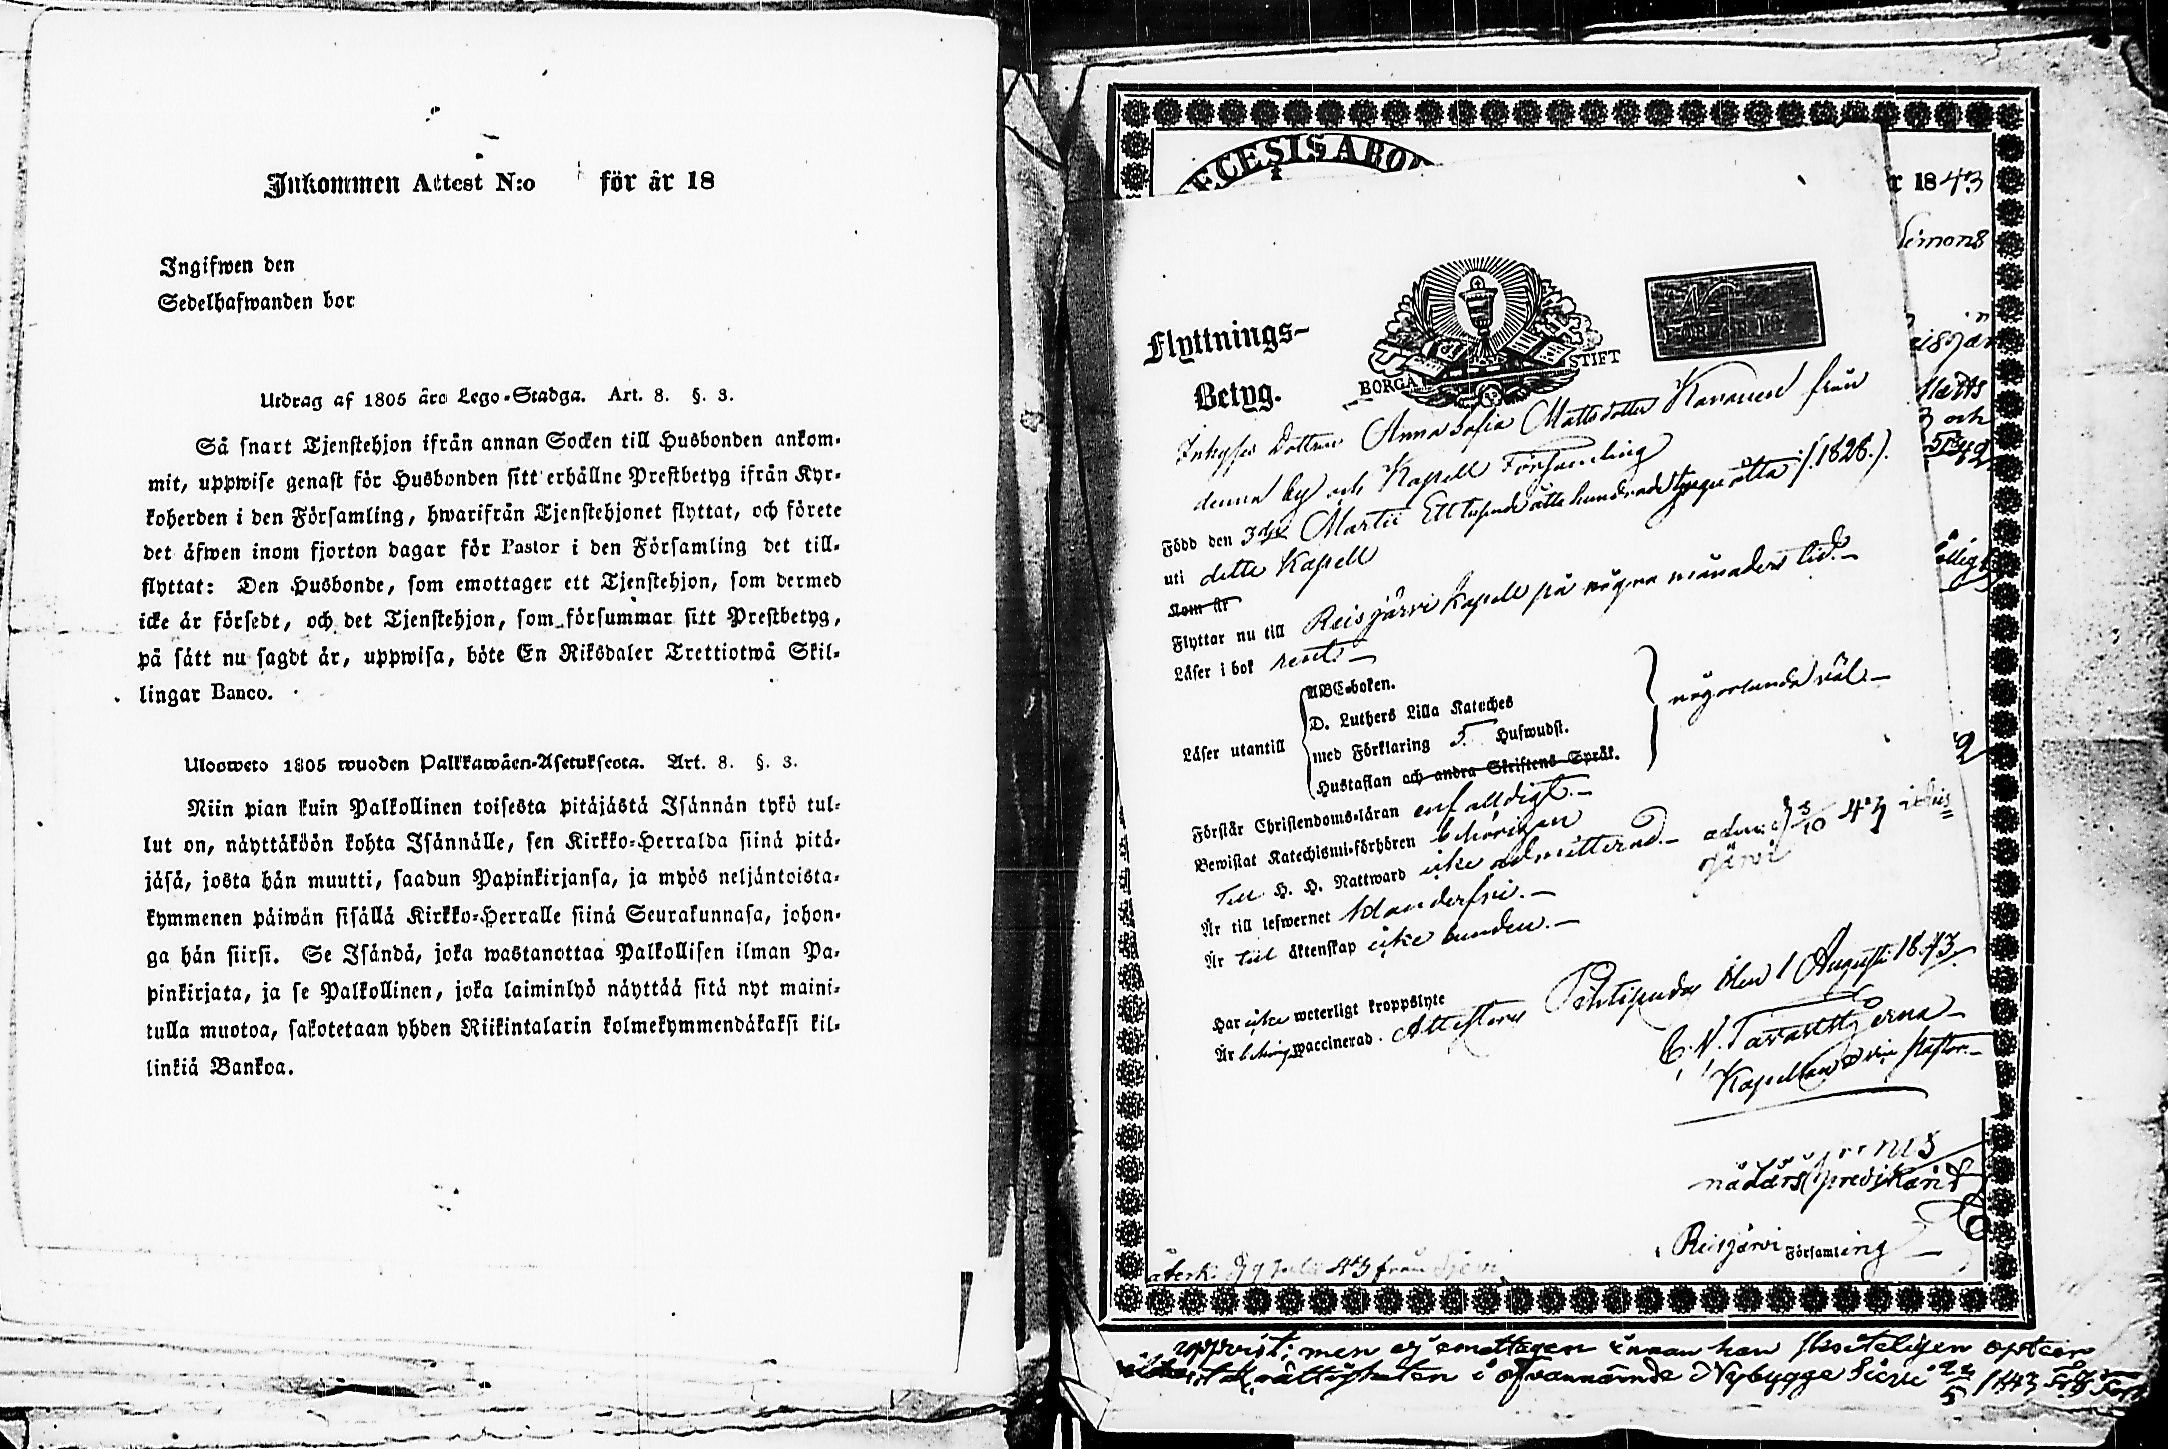 Inkommen Attest N:o för år 18
Ingifwen den
Sedelhafwanden bor
Utdrag af 1805 års Lego-Stadga. Art. 8. §. 3.
Så snart Tjenstehjon ifrån annan Socken till Husbonden ankom-
mit, uppwise genast för Husbonden sitt erhållne Prestbetyg ifrån Kyr-
koherden i den Församling, hwarifrån Tjenstehjonet flyttat, och förete
det äfwen inom fjorton dagar för Pastor i den Församling det till-
flyttat: Den Husbonde, som emottager ett Tjenstehjon, som dermed
icke är försedt, och det Tjenstehjon, som försummar sitt Prestbetyg,
på sätt nu sagdt är, uppwisa, böte En Riksdaler Trettiotwå Skil-
lingar Banco.
Ulosweto 1805 wuoden Palkkawäen-Asetuksesta. Art. 8. §. 3.
Niin pian kuin Palkollinen toisesta pitäjästä Isännän tykö tul-
lut on, näyttäköön kohta Isännälle, sen Kirkko-Herralda siinä pitä-
jäsä, josta hän muutti, saadun Papinkirjansa, ja myös neljäntoista-
kymmenen päiwän sisällä Kirkko-Herralle siinä Seurakunnasa, johon-
ga hän siirsi. Se Isändä, joka wastanottaa Palkollisen ilman Pa-
pinkirjata, ja se Palkollinen, joka laiminlyö näyttää sitä nyt maini-
tulla muotoa, sakotetaan yhden Riikintalarin kolmekymmendäkaksi kil-
linkiä Bankoa.
ECESIS ABO
r 1843
Simons
Flyttnings-
Betyg.
BORGÅ STIFT
FÖR ÅR 18
Inhyses Dottren Anna Sofia Mattsdotter Kananen från
denna by och Kapell Församling
Född den 3dje Martii Ett tusende åtta hundrade tjugu åtta /.1828./.
uti dette Kapell
Kom år
Flyttar nu till Reisjärvi Kapell på några månaders tid.
Läser i bok rent.
Läser utantill
ABC-boken.
D. Luthers Lilla Kateches
med Förklaring 5. Hufwudst.
Hustaflan och andra Skriftens Språk.
någorlunda väl.
Förstår Christendoms-läran enfalldigt.
Bewistat Katechismi-förhören behörigen
Till H. H. Nattward icke admitterad. adm: d 8/10 43 i Reis
järvi
Är till lefwernet klanderfri.
Är till äktenskap icke bunden.
Har icke weterligt kroppslyte
Är behörig waccinerad. Attesterar Pihtipudas den 1 Augusti 1843.
C. N. Tavaststjerna
Kapellan Vice Pastor.
Matts
och
nådårspredikant
i Reisjärvi Församling
återk: d 9 Julii 43 från
uppvist; men ej emottagen innan han
rättigheten i ofvannämde Nybygge 22/5 1843